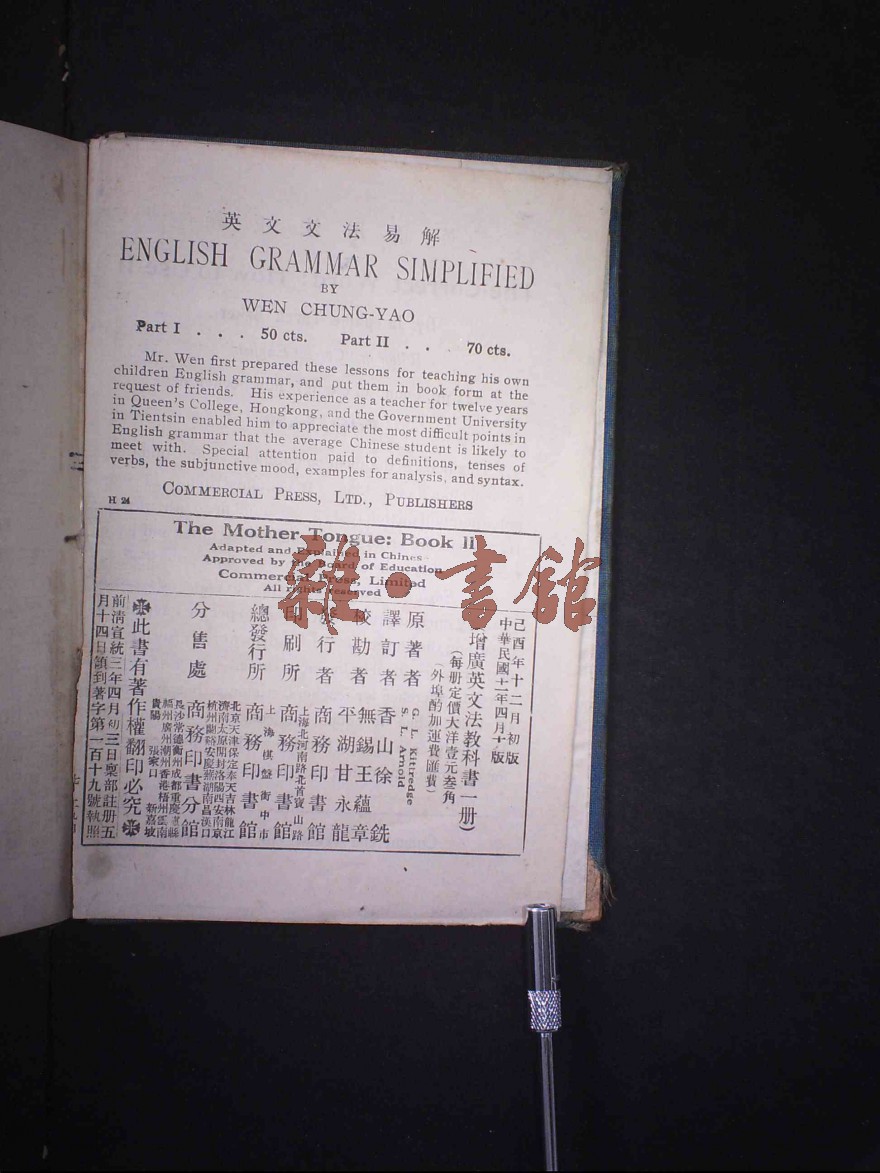 英文文法易解
ENGLISH GRAMMAR SIMPLIFIED
BY
WEN CHUNG-YAO
Part I . . . 50 cts. Part II . . . 70 cts.
Mr. Wen first prepared these lessons for teaching his own
children English grammar, and put them in book form at the
request of friends. His experience as a teacher for twelve years
in Queen's College, Hongkong, and the Government University
in Tientsin enabled him to appreciate the most difficult points in
English grammar that the average Chinese student is likely to
meet with. Special attention paid to definitions, tenses of
verbs, the subjunctive mood, examples for analysis, and syntax.
COMMERCIAL PRESS, LTD., PUBLISHERS
H 24
The Mother Tongue: Book II
Adapted and Explained in Chinese
Approved by the Board of Education
Commercial Press, Limited
All rights reserved
雜·書館
己酉年十二月初版
中華民國十一年四月版
增廣英文法教科書一册)
(每册定價大洋壹元叁角
(外埠酌加運費匯費)
原著者 G. L. Kittredge
S. L. Arnold
譯訂者 香山徐銑
校勘者 無錫王蘊章
平湖甘永龍
發行者 商務印書館
印刷所 上海北河南路北首寶山路
商務印書館
總發行所 上海棋盤街中市
商務印書館
分售處
北京天津保定奉天吉林龍江
濟南太原開封洛陽西安南京
杭州蘭谿安慶蕪湖南昌漢口
商務印書分館
長沙常德衡州成都重慶縣
福州廣州潮州香港梧州雲南
貴陽 張家口 新嘉坡
此書有著作權翻印必究
前清宣統三年四月初三日稟部註册五
月十四日領到著字第一百十九號執照